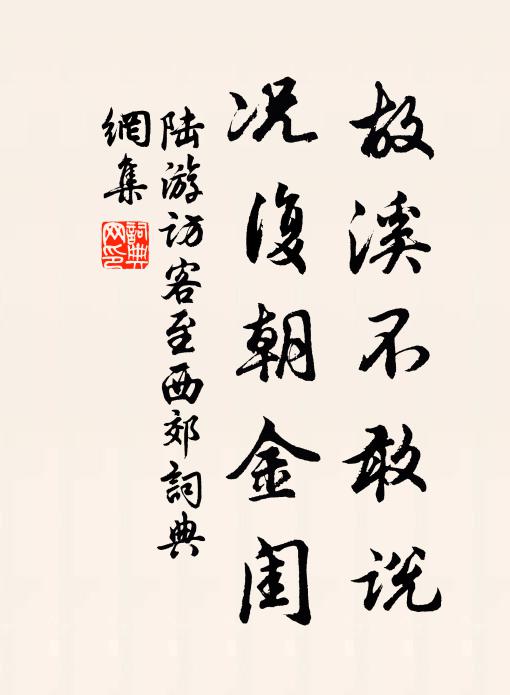 故溪不敢说
况復朝金闺
陆游访客至西郊詞典
網集
詞典網印